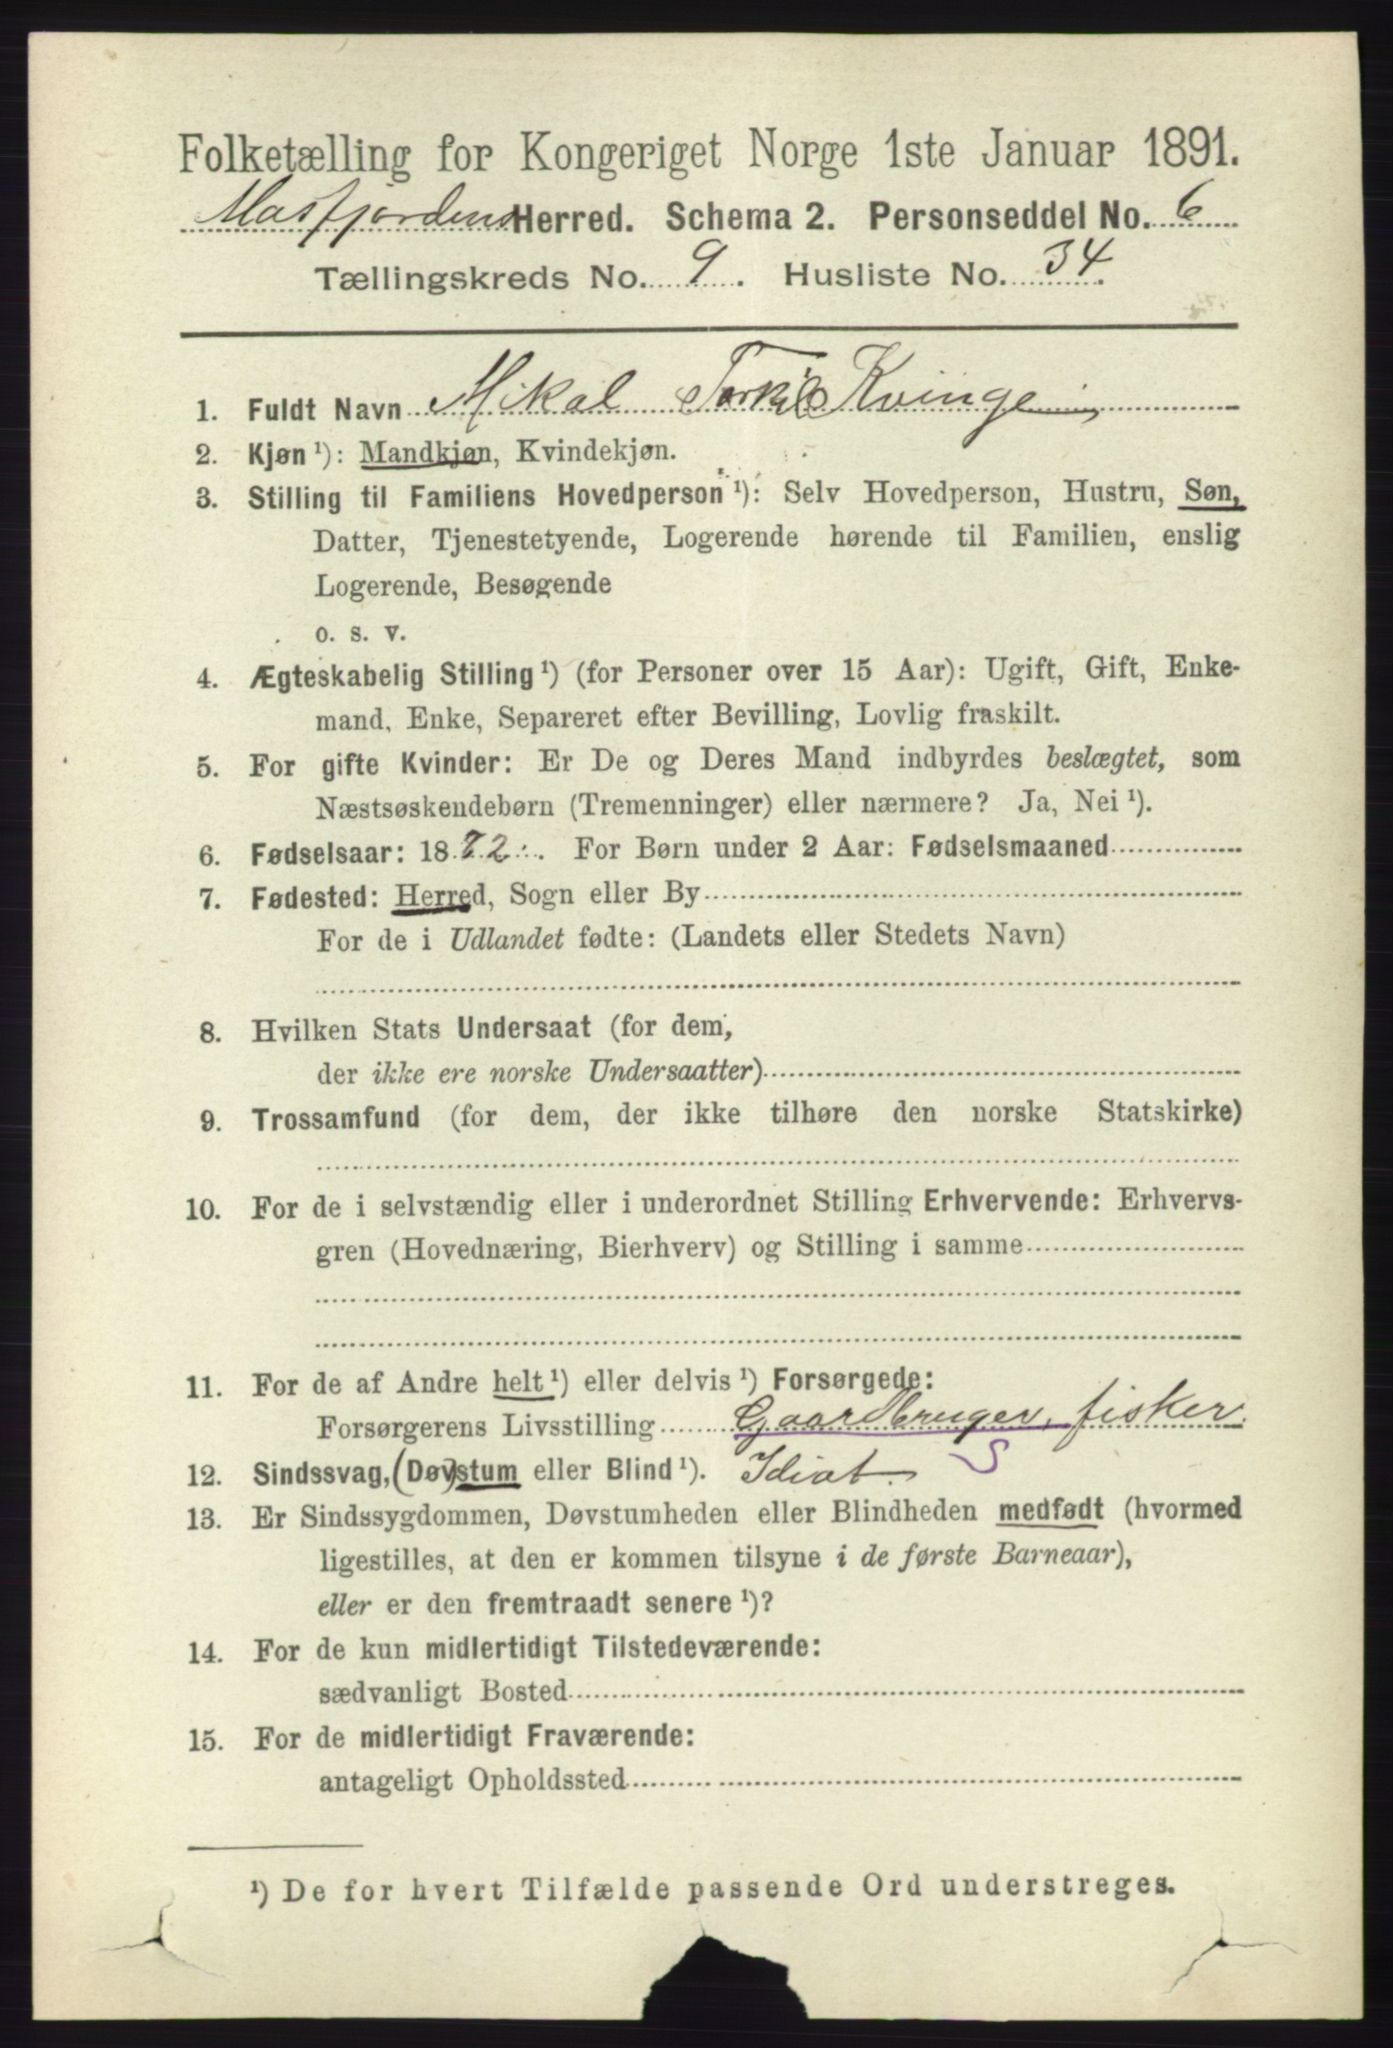 Folketælling for Kongeriget Norge 1ste Januar 1891.
Masfjordens Herred. Schema 2. Personseddel No. 6
Tællingskreds No. 9. Husliste No. 34.
1. Fuldt Navn Mikal Torkils Kvinge
2. Kjøn ¹): Mandkjøn, Kvindekjøn.
3. Stilling til Familiens Hovedperson ¹): Selv Hovedperson, Hustru, Søn,
Datter, Tjenestetyende, Logerende hørende til Familien, enslig
Logerende, Besøgende
o. s. v.
4. Ægteskabelig Stilling ¹) (for Personer over 15 Aar): Ugift, Gift, Enke-
mand, Enke, Separeret efter Bevilling, Lovlig fraskilt.
5. For gifte Kvinder: Er De og Deres Mand indbyrdes beslægtet, som
Næstsøskendebørn (Tremenninger) eller nærmere? Ja, Nei ¹).
6. Fødselsaar: 1872. For Børn under 2 Aar: Fødselsmaaned
7. Fødested: Herred, Sogn eller By
For de i Udlandet fødte: (Landets eller Stedets Navn)
8. Hvilken Stats Undersaat (for dem,
der ikke ere norske Undersaatter)
9. Trossamfund (for dem, der ikke tilhøre den norske Statskirke)
10. For de i selvstændig eller i underordnet Stilling Erhvervende: Erhvervs-
gren (Hovednæring, Bierhverv) og Stilling i samme
11. For de af Andre helt ¹) eller delvis ¹) Forsørgede:
Forsørgerens Livsstilling Gaardbruger, fisker
12. Sindssvag, (Døv)stum eller Blind ¹). Idiot. S
13. Er Sindssygdommen, Døvstumheden eller Blindheden medfødt (hvormed
ligestilles, at den er kommen tilsyne i de første Barneaar),
eller er den fremtraadt senere ¹)?
14. For de kun midlertidigt Tilstedeværende:
sædvanligt Bosted
15. For de midlertidigt Fraværende:
antageligt Opholdssted
¹) De for hvert Tilfælde passende Ord understreges.